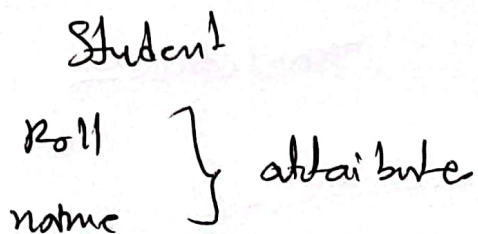 Student
Roll
name } attribute